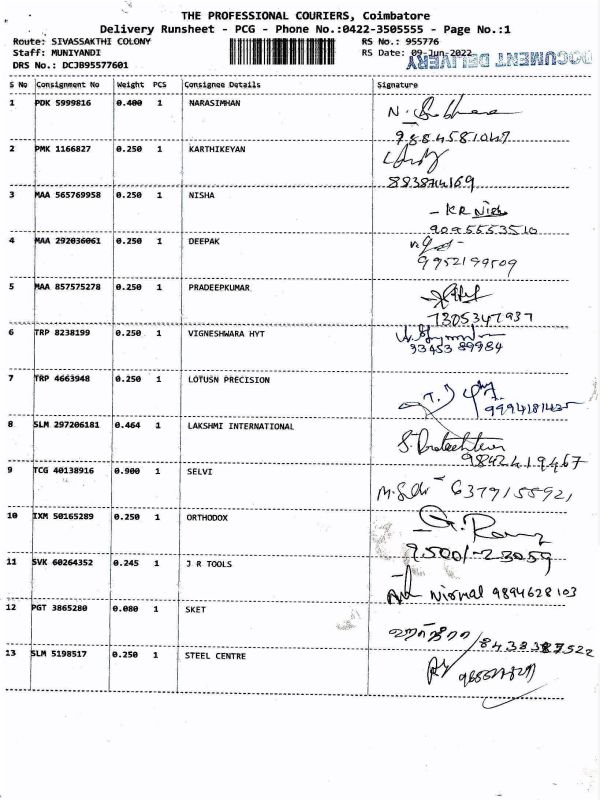 THE PROFESSIONAL COURIERS, Coimbatore
Delivery Runsheet - PCG - Phone No.:0422-3505555 - Page No.:1
Route: SIVASSAKTHI COLONY RS No.: 955776
Staff: MUNIYANDI RS Date: 09-Jun-2022
DOCUMENT DELIVERY
DRS No.: DCJB95577601
S No Consignment No Weight PCS Consignee Details Signature
1 PDK 5999816 0.400 1 NARASIMHAN
9884581047
2 PMK 1166827 0.250 1 KARTHIKEYAN
8838714169
3 MAA 565769958 0.250 1 NISHA - KR
9095553510
4 MAA 292036061 0.250 1 DEEPAK
9952199509
5 MAA 857575278 0.250 1 PRADEEPKUMAR
7305347937
6 TRP 8238199 0.250 1 VIGNESHWARA HYT
93453 89984
7 TRP 4663948 0.250 1 LOTUSN PRECISION
8 SLM 297206181 0.464 1 LAKSHMI INTERNATIONAL
9842419467
9 TCG 40138916 0.900 1 SELVI
6379158921
10 IXM 50165289 0.250 1 ORTHODOX
95001-23059
11 SVK 60264352 0.245 1 J R TOOLS
Nirmal 9894628103
12 PGT 3865280 0.080 1 SKET
13 SLM 5198517 0.250 1 STEEL CENTRE